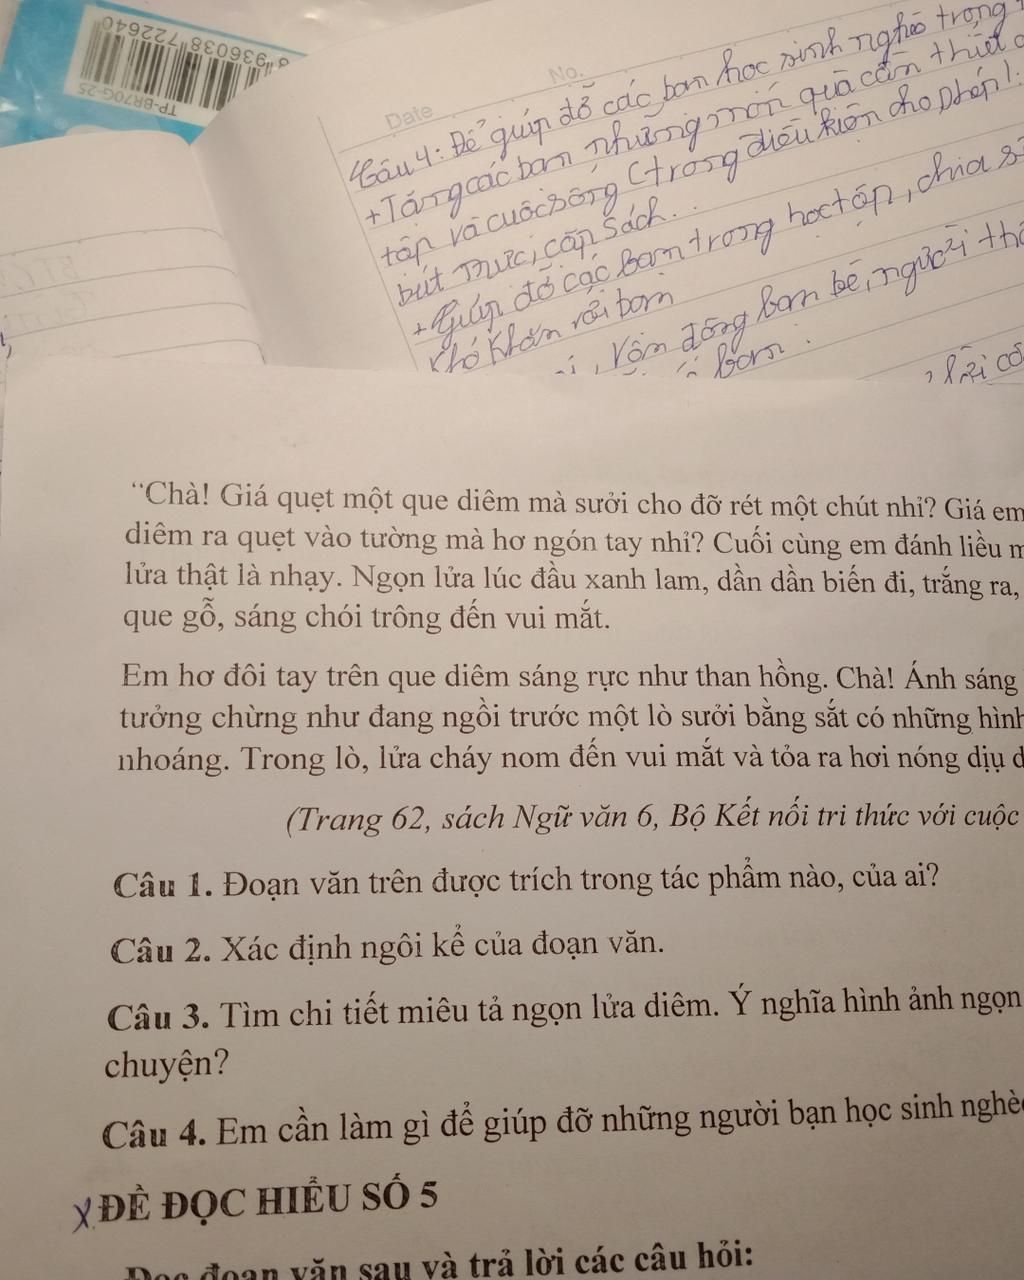 8 936038 722640
TP-BR70G-25
Date No.
Câu 4: Để giúp đỡ các bạn học sinh nghèo trong
+ Tặng các bạn những món quà cần thiết
tập và cuộc sống (trong điều kiện cho phép!:
bút mực, cặp sách...
+ Giúp đỡ các bạn trong học tập, chia sẻ
khó khăn với bạn
vận động bạn bè, người thâ
bạn.
“Chà! Giá quẹt một que diêm mà sưởi cho đỡ rét một chút nhỉ? Giá em
diêm ra quẹt vào tường mà hơ ngón tay nhỉ? Cuối cùng em đánh liều m
lửa thật là nhạy. Ngọn lửa lúc đầu xanh lam, dần dần biến đi, trắng ra,
que gỗ, sáng chói trông đến vui mắt.
Em hơ đôi tay trên que diêm sáng rực như than hồng. Chà! Ánh sáng
tưởng chừng như đang ngồi trước một lò sưởi bằng sắt có những hình
nhoáng. Trong lò, lửa cháy nom đến vui mắt và tỏa ra hơi nóng dịu d
(Trang 62, sách Ngữ văn 6, Bộ Kết nối tri thức với cuộc
Câu 1. Đoạn văn trên được trích trong tác phẩm nào, của ai?
Câu 2. Xác định ngôi kể của đoạn văn.
Câu 3. Tìm chi tiết miêu tả ngọn lửa diêm. Ý nghĩa hình ảnh ngọn
chuyện?
Câu 4. Em cần làm gì để giúp đỡ những người bạn học sinh nghè
X ĐỀ ĐỌC HIỂU SỐ 5
Đọc đoạn văn sau và trả lời các câu hỏi: